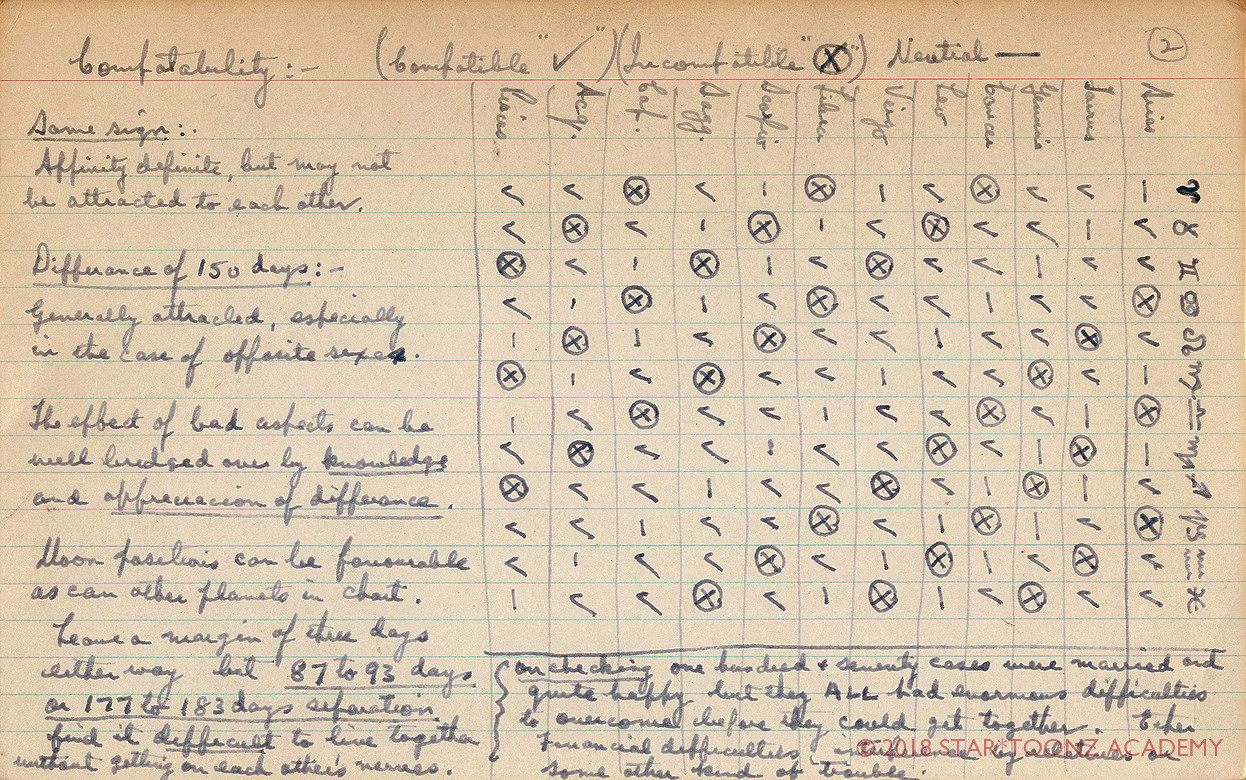 Compatability :- (Compatible "✓") (Incompatible "⊗") Neutrial — 2
Pisces Acq. Cap. Sagg. Scorpio Libra Virgo Leo Cancer Gemini Taurus Aries
Same sign :.
Affinity definite, but may not
be attracted to each other.
Differance of 150 days :-
Generally attracted, especially
in the case of opposite sexes.
The effect of bad aspects can be
well bridged over by knowledge
and appreciacion of difference.
Moon positions can be favourable
as can other planets in chart.
Leave a margin of three days
either way but 87 to 93 days
or 177 to 183 days separation
find it difficult to live together
without getting on each other's nerves.
✓ ✓ ⊗ ✓ — ⊗ — ✓ ⊗ ✓ ✓ — ♈
✓ ⊗ ✓ — ⊗ — ✓ ⊗ ✓ ✓ — ✓ ♉
⊗ ✓ — ⊗ — ✓ ⊗ ✓ ✓ — ✓ ✓ ♊
✓ — ⊗ — ✓ ⊗ ✓ ✓ — ✓ ✓ ⊗ ♋
— ⊗ — ✓ ⊗ ✓ ✓ — ✓ ✓ ⊗ ✓ ♌
⊗ — ✓ ⊗ ✓ ✓ — ✓ ✓ ⊗ ✓ — ♍
— ✓ ⊗ ✓ ✓ — ✓ ✓ ⊗ ✓ — ⊗ ♎
✓ ⊗ ✓ ✓ — ✓ ✓ ⊗ ✓ — ⊗ — ♏
⊗ ✓ ✓ — ✓ ✓ ⊗ ✓ — ⊗ — ✓ ♐
✓ ✓ — ✓ ✓ ⊗ ✓ — ⊗ — ✓ ⊗ ♑
✓ — ✓ ✓ ⊗ ✓ — ⊗ — ✓ ⊗ ✓ ♒
— ✓ ✓ ⊗ ✓ — ⊗ — ✓ ⊗ ✓ ✓ ♓
on checking one hundred & seventy cases were married and
quite happy but they ALL had enormous difficulties
to overcome before they could get together. Either
Financial difficulties, interference by relatives or
some other kind of trouble.
© 2018 STAR*TOONZ ACADEMY